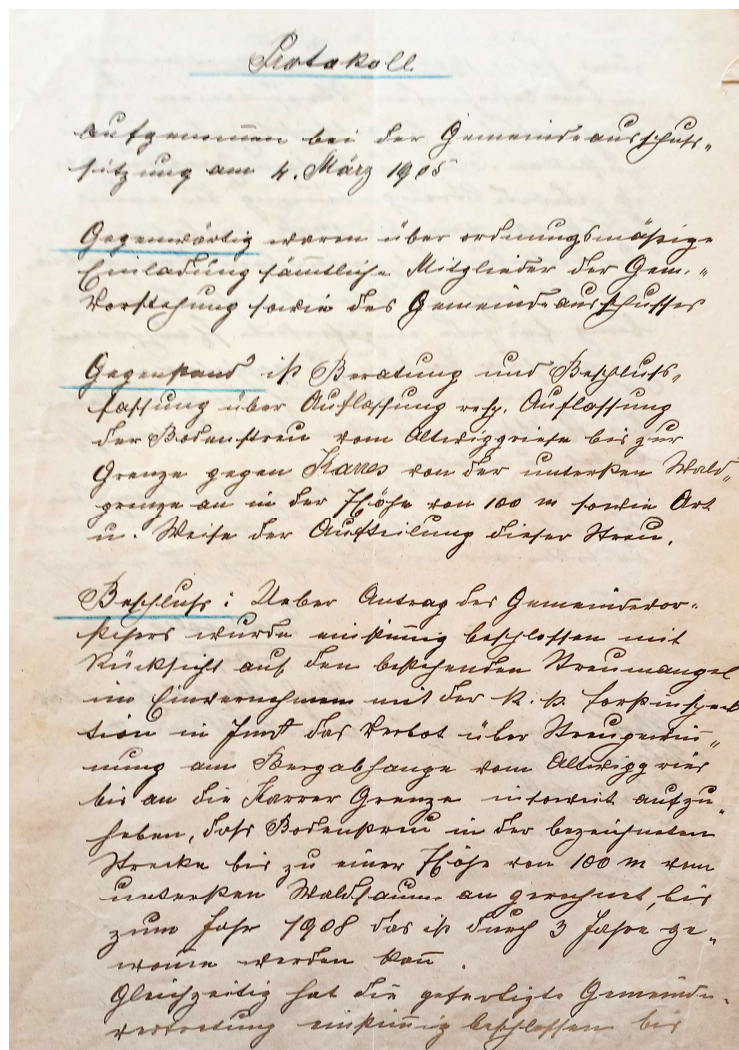 Protokoll
aufgenommen bei der Gemeindeausschuss„
sitzung am 4. März 1905
Gegenwärtig waren über ordnungsmäßige
Einladung sämtliche Mitglieder der Gem.„
Vorstehung sowie des Gemeindeausschusses
Gegenstand ist Beratung und Beschluss„
fassung über Auflassung resp. Auflassung
der Bodenstreu vom Altwiggriese bis zur
Grenze gegen Karres von der untersten Wald„
grenze an in der Höhe von 100 m sowie Art
u. Weise der Aufteilung dieser Streu.
Beschluss: Ueber Antrag des Gemeindevor„
stehers wurde einstimig beschlossen mit
Rücksicht auf den bestehenden Streumangel
im Einvernehmen mit der k. k. Forstinspek
tion in Imst das Verbot über Streugewin„
nung am Bergabhange vom Altwiggries
bis an die Karrer Grenze insoweit aufzu„
heben, dass Bodenstreu in der bezeichneten
Strecke bis zu einer Höhe von 100 m vom
untersten Waldsaume an gerechnet, bis
zum Jahr 1908 das ist durch 3 Jahre ge„
wonnen werden kann.
Gleichzeitig hat die gefertigte Gemeinde„
vertretung einstimmig beschlossen bis